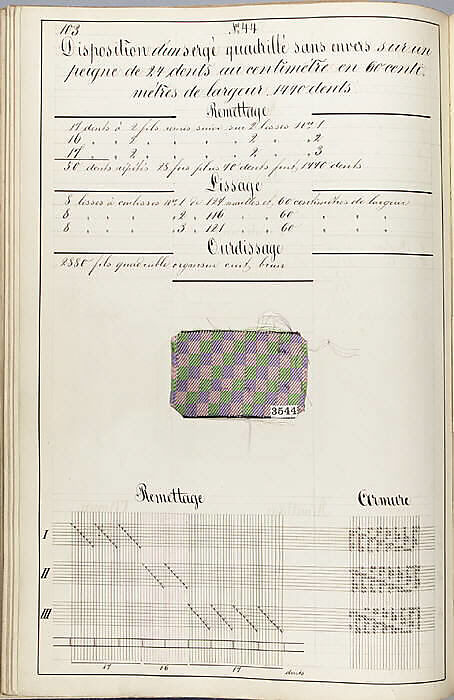 103 N° 44
Disposition d'un sergé quadrillé sans envers sur un
peigne de 24 dents au centimètre en 60 centi-
mètres de largeur, 1440 dents
Remettage
17 dents à 2 fils remis suivi sur 2 lisses N° 1
16 " " 2 " " " " 2 " " 2
17 " " 2 " " " " 2 " " 3
50 dents répétés 28 fois plus 40 dents font, 1440 dents
Lissage
8 lisses à coulisses N° 1 de 124 mailles et 60 centimètres de largeur
8 " " " 2 " 116 " " 60 " " "
8 " " " 3 " 121 " " 60 " " "
Ourdissage
2880 fils organsin cuit,
3544
Remettage Armure
I
II
III
17 16 17 dents